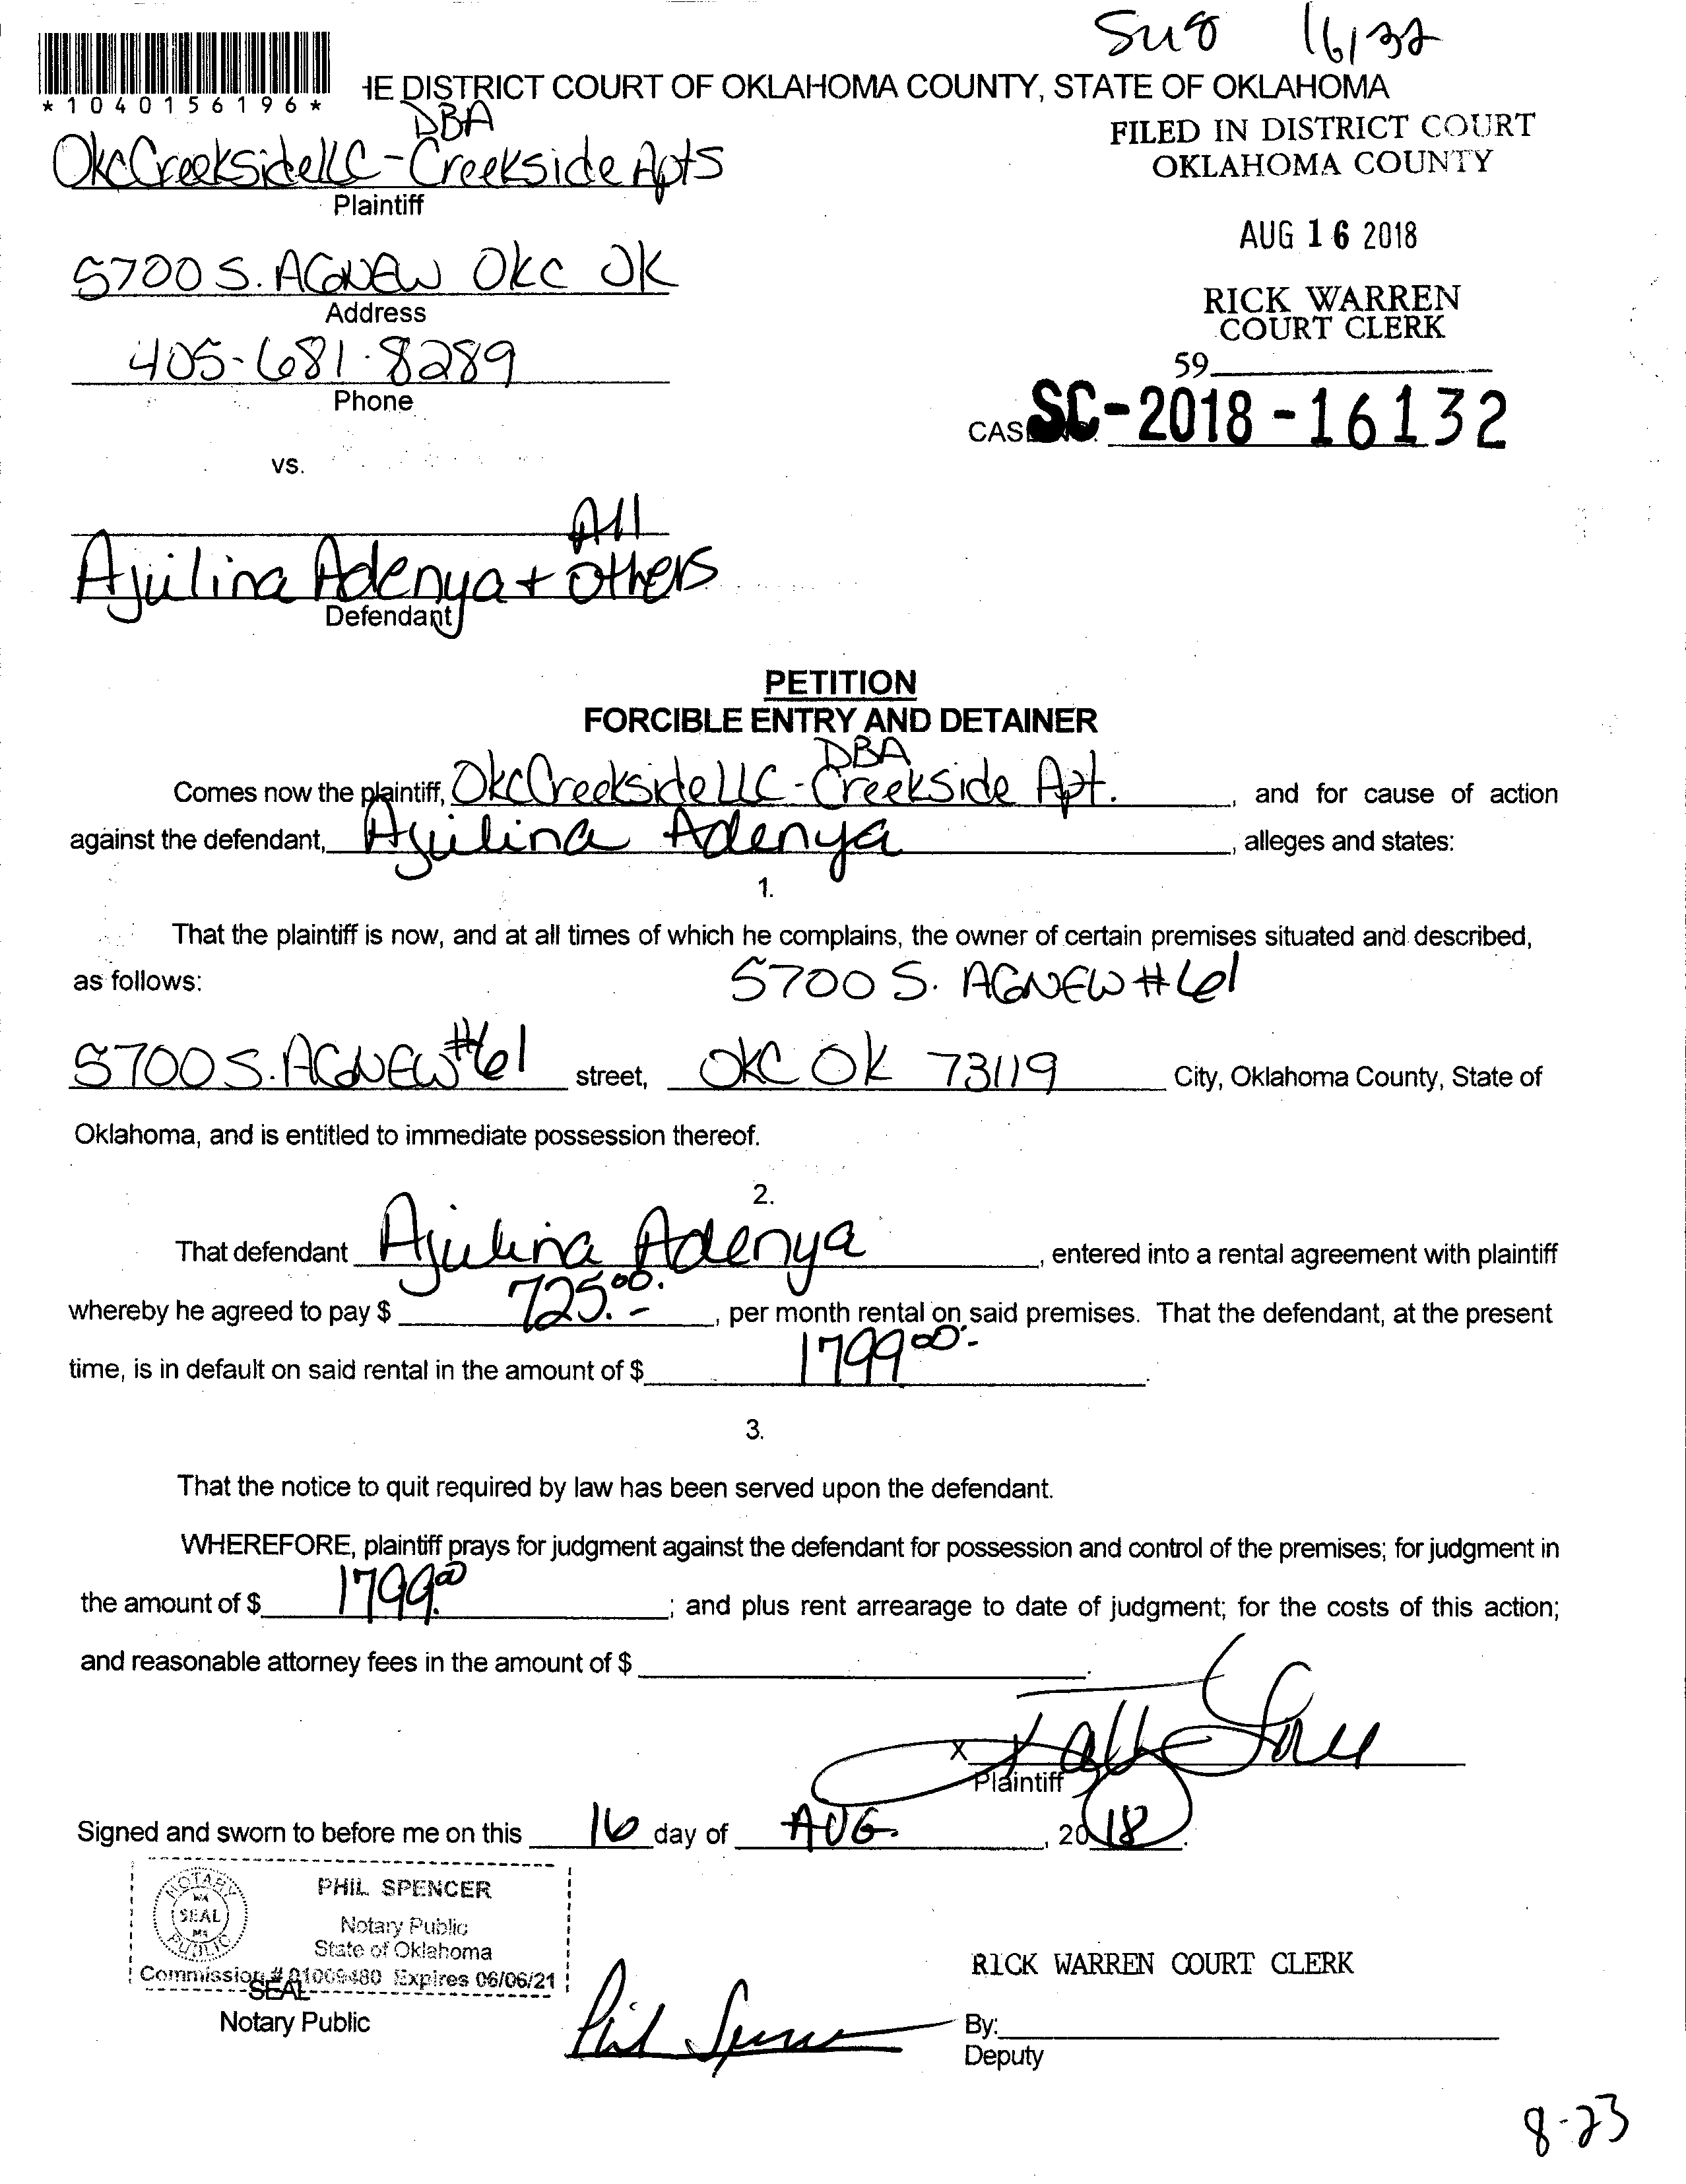 16132
*1040156196*
HE DISTRICT COURT OF OKLAHOMA COUNTY, STATE OF OKLAHOMA
DBA
OkcCreekside LLC - Creekside Apts
Plaintiff
FILED IN DISTRICT COURT
OKLAHOMA COUNTY
5700 S. AGNEW OKC OK
Address
AUG 16 2018
405-681-8289
Phone
RICK WARREN
COURT CLERK
59
CASE NO. SC-2018-16132
vs.
All
Ajulina Adenya + others
Defendant
PETITION
FORCIBLE ENTRY AND DETAINER
DBA
Comes now the plaintiff, OkcCreekside LLC - Creekside Apt., and for cause of action
against the defendant, Ajulina Adenya, alleges and states:
1.
That the plaintiff is now, and at all times of which he complains, the owner of certain premises situated and described,
as follows: 5700 S. AGNEW #61
5700 S. AGNEW #61 street, OKC OK 73119 City, Oklahoma County, State of
Oklahoma, and is entitled to immediate possession thereof.
2.
That defendant Ajulina Adenya, entered into a rental agreement with plaintiff
whereby he agreed to pay $ 725.00, per month rental on said premises. That the defendant, at the present
time, is in default on said rental in the amount of $ 1799 00.
3.
That the notice to quit required by law has been served upon the defendant.
WHEREFORE, plaintiff prays for judgment against the defendant for possession and control of the premises; for judgment in
the amount of $ 1799.00; and plus rent arrearage to date of judgment; for the costs of this action;
and reasonable attorney fees in the amount of $ .
X
Plaintiff
Signed and sworn to before me on this 16 day of AUG., 2018.
NOTARY
SEAL
PUBLIC
PHIL SPENCER
Notary Public
State of Oklahoma
Commission # 01009480 Expires 06/06/21
SEAL
Notary Public
Phil Spencer
RICK WARREN COURT CLERK
By:
Deputy
8-23